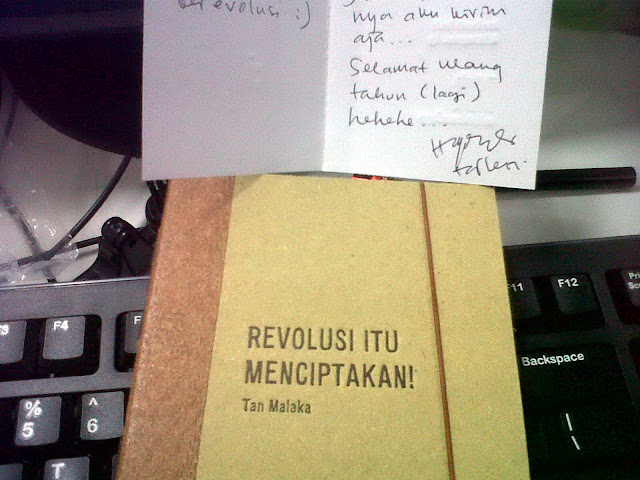 berevolusi :)
nya aku kirim
aja...
Selamat ulang
tahun (lagi)
hehehe...
REVOLUSI ITU
MENCIPTAKAN!
Tan Malaka
F4
F
11
F12
Backspace
|
\
%
5
^
6
T